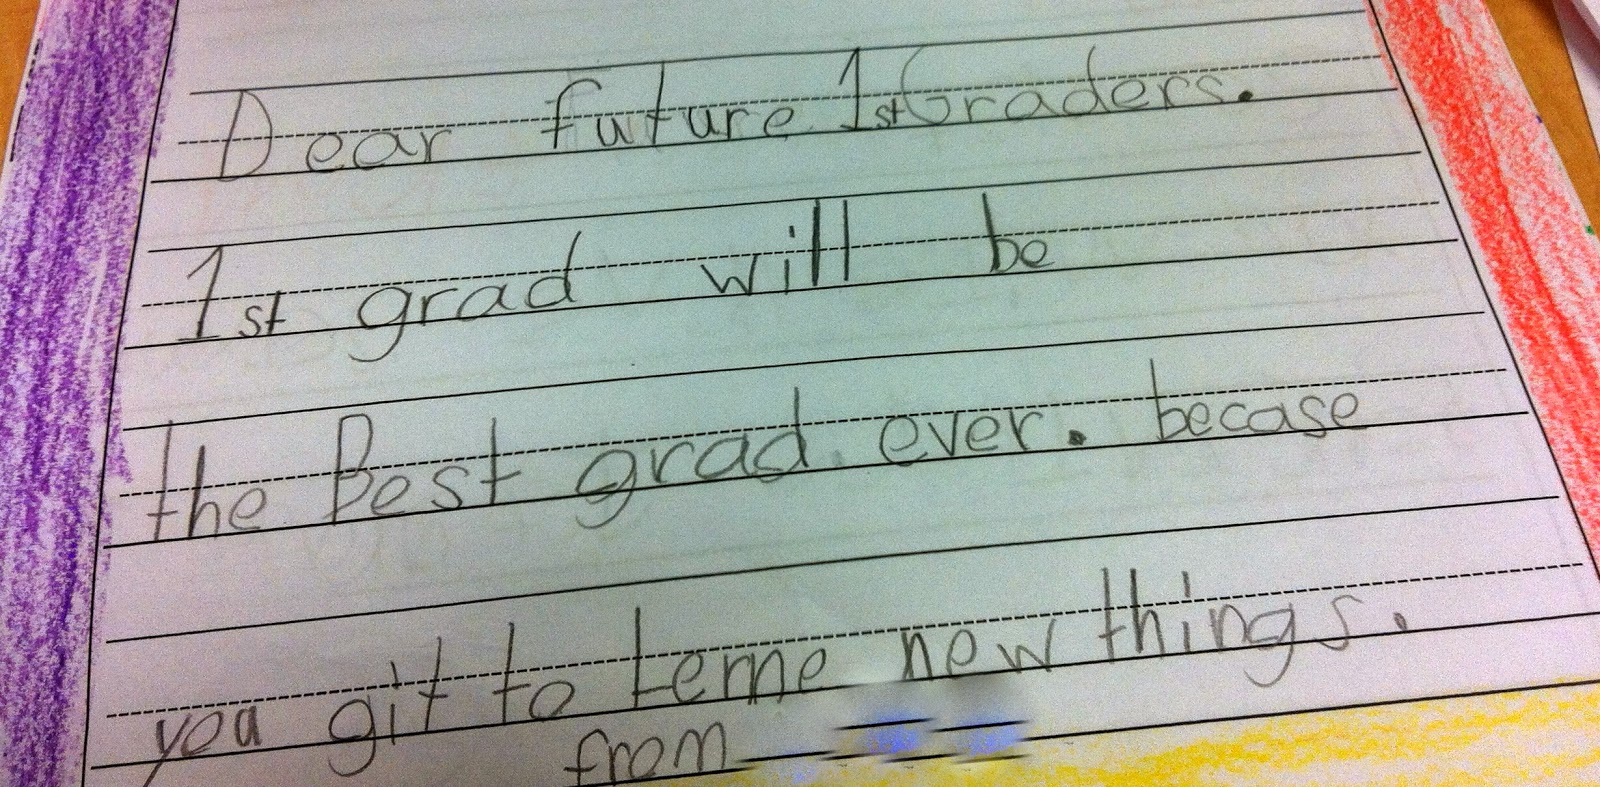 Dear future 1st Graders.
1st grad will be
the Best grad ever. becase
you git to lerne new things.
from